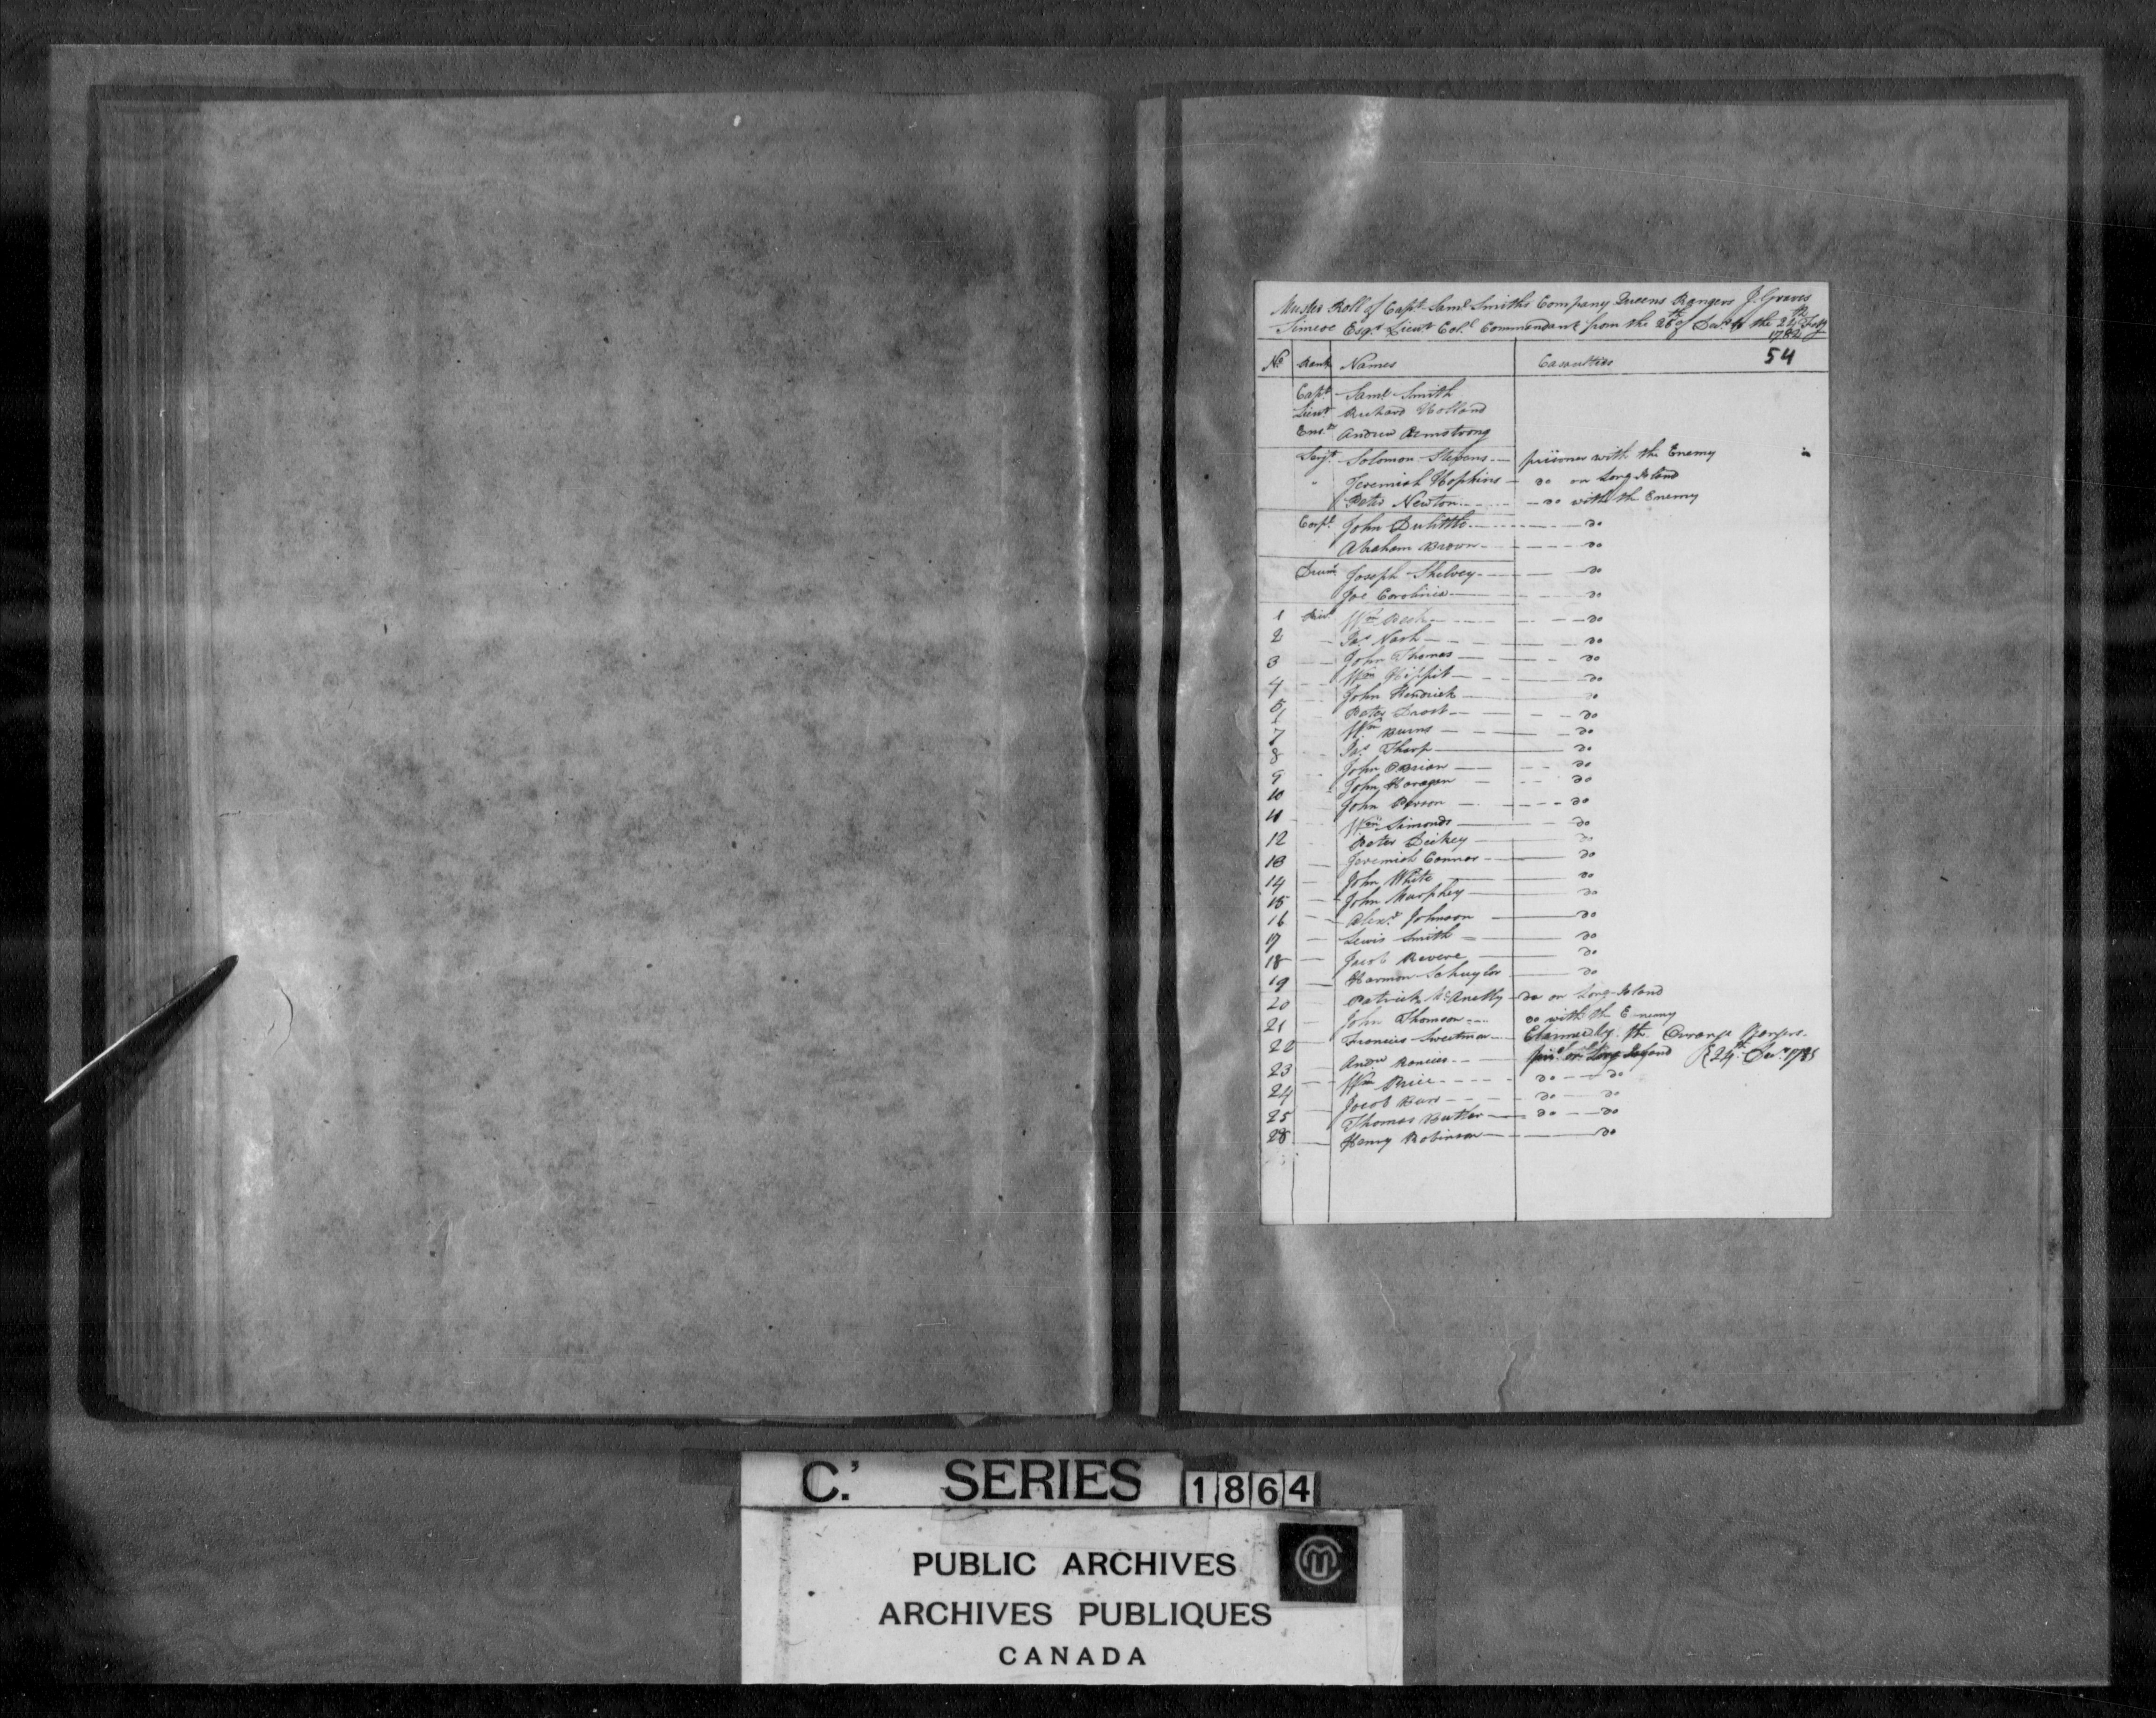 Muster Roll of Capt. Saml Smiths Company Queens Rangers J. Graves
Simcoe Esqr. Lieut Coll. Commandant from the 25th of Decr. to the 24th Feby
1782
54
No Rank Names Casualties
Capt. Saml Smith
Lieut. Richard Holland
Ens. Andrew Armstrong
Serjt. Solomon Stevens prisoner with the Enemy
" Jeremiah Hopkins do on Long Island
Peter Newton do with the Enemy
Corpl. John Dulittle do
Abraham Brown do
Drum Joseph Shelvey do
Joe Carolinia do
1 Priv. Wm do
2 Jas. Nash do
3 John Thomas do
4 Wm Hippit do
5 John Kendrick do
6 Peter do
7 Wm Burns do
8 Jas. Tharp do
9 John Obrian do
10 John Haragan do
11 John Person do
Wm Simonds do
12 Peter Dickey do
13 Jeremiah Connor do
14 John White do
15 John Murphey do
16 Alexr. Johnson do
17 Lewis Smith do
18 Jacob Revere do
19 Harmon Schuyler do
20 Patrick McAnelly do on Long Island
21 John Thomson do with the Enemy
22 Francis Sweetman Claimed by the Rangers
23 Andw on Long Island 24th Decr. 178
24 Wm Price do do
25 Jacob Burr do do
Thomas Butler do do
Henry Robinson do
C.' SERIES 1864
PUBLIC ARCHIVES
ARCHIVES PUBLIQUES
CANADA